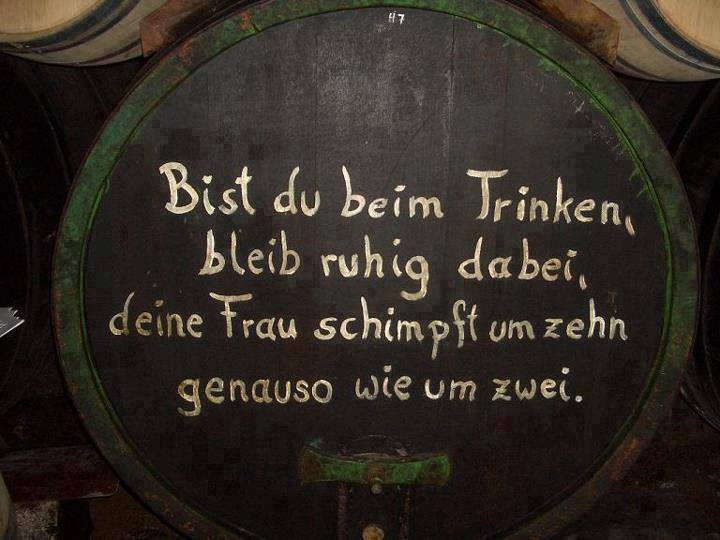 47
Bist du beim Trinken,
bleib ruhig dabei,
deine Frau schimpft um zehn
genauso wie um zwei.